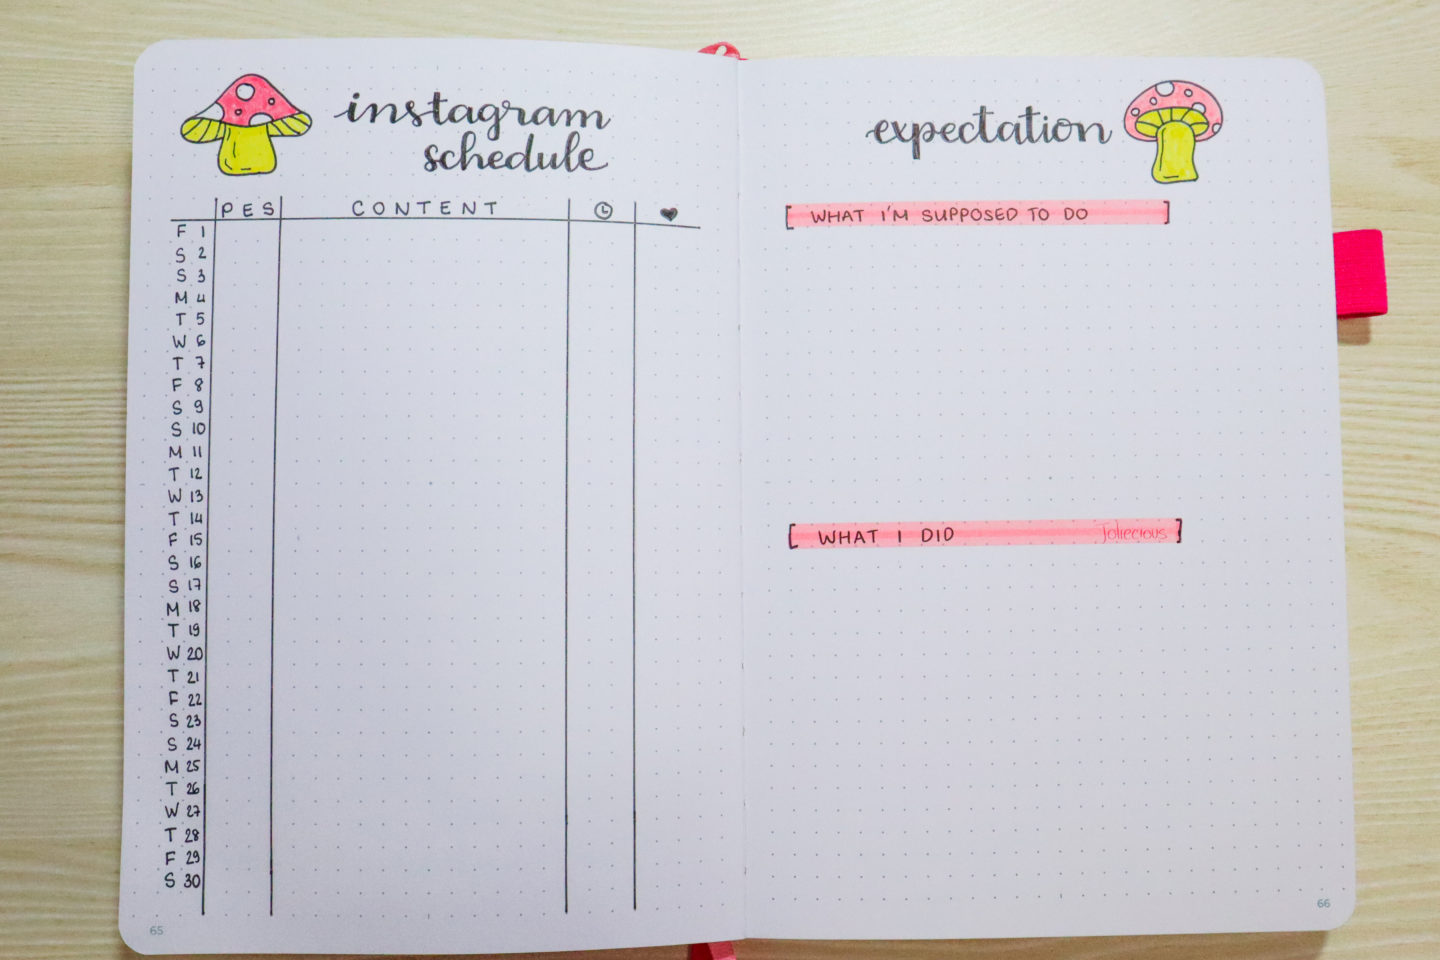 instagram
schedule
PES CONTENT
F 1
S 2
S 3
M 4
T 5
W 6
T 7
F 8
S 9
S 10
M 11
T 12
W 13
T 14
F 15
S 16
S 17
M 18
T 19
W 20
T 21
F 22
S 23
S 24
M 25
T 26
W 27
T 28
F 29
S 30
65
expectation
[ WHAT I'M SUPPOSED TO DO ]
[ WHAT I DID Joliecious ]
66